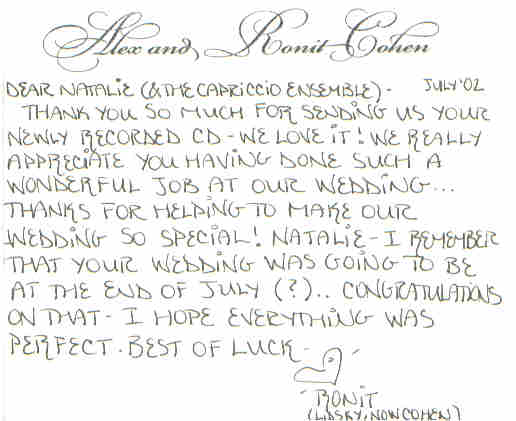 Alex and Ronit Cohen
DEAR NATALIE (& THE CAPRICCIO ENSEMBLE) - JULY '02
THANK YOU SO MUCH FOR SENDING US YOUR
NEWLY RECORDED CD - WE LOVE IT! WE REALLY
APPRECIATE YOU HAVING DONE SUCH A
WONDERFUL JOB AT OUR WEDDING...
THANKS FOR HELPING TO MAKE OUR
WEDDING SO SPECIAL! NATALIE - I REMEMBER
THAT YOUR WEDDING WAS GOING TO BE
AT THE END OF JULY (?).. CONGRATULATIONS
ON THAT - I HOPE EVERYTHING WAS
PERFECT. BEST OF LUCK -
RONIT
(LASKY, NOW COHEN)